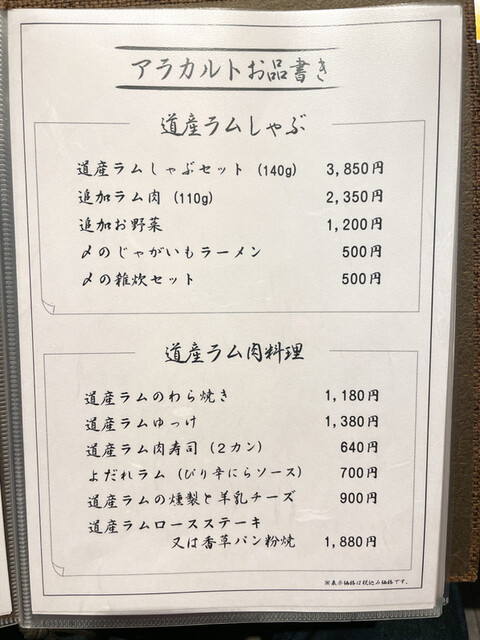 アラカルトお品書き
道産ラムしゃぶ
道産ラムしゃぶセット (140g) 3,850円
追加ラム肉 (110g) 2,350円
追加お野菜 1,200円
〆のじゃがいもラーメン 500円
〆の雑炊セット 500円
道産ラム肉料理
道産ラムのわら焼き 1,180円
道産ラムゆっけ 1,380円
道産ラム肉寿司 (2カン) 640円
よだれラム (ぴり辛にらソース) 700円
道産ラムの燻製と羊乳チーズ 900円
道産ラムロースステーキ
又は香草パン粉焼 1,880円
※表示価格は税込み価格です。